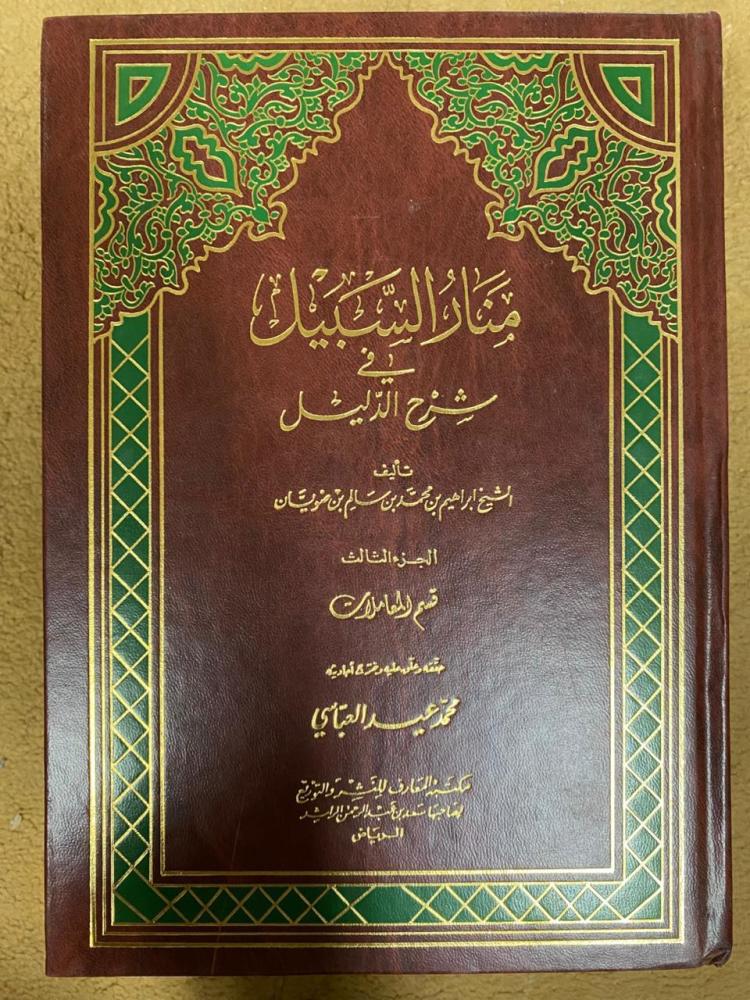 مَنَارُ السَّبِيْل
في
شَرْح الدَّلِيْل
تأليف
الشيخ ابراهيم بن محمّد بن سَالم بن ضويَّان
الجزء الثالث
قسم المعاملات
حققه وعلق عليه وخرج أحاديثه
محمّد عيد العبّاسي
مكتبة المعارف للنشر والتوزيع
لصَاحِبهَا سَعد بن عَبد الرحمن الراشد
الريَاض